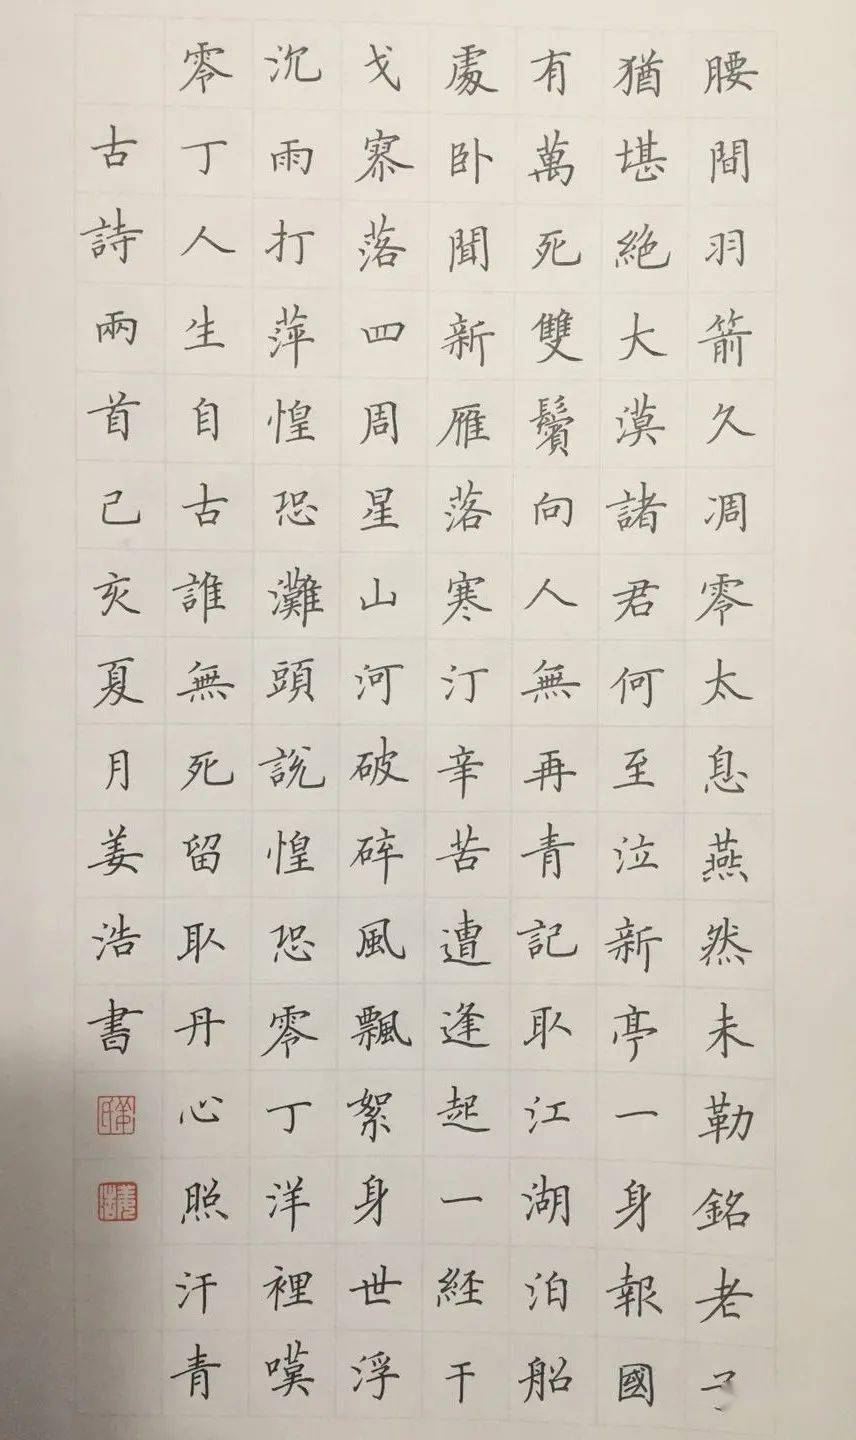 腰間羽箭久凋零太息燕然未勒銘老子
猶堪絕大漠諸君何至泣新亭一身報國
有萬死雙鬢向人無再青記取江湖泊船
處卧聞新雁落寒汀辛苦遭逢起一經干
戈寥落四周星山河破碎風飄絮身世浮
沉雨打萍惶恐灘頭說惶恐零丁洋裡嘆
零丁人生自古誰無死留取丹心照汗青
古詩兩首己亥夏月姜浩書